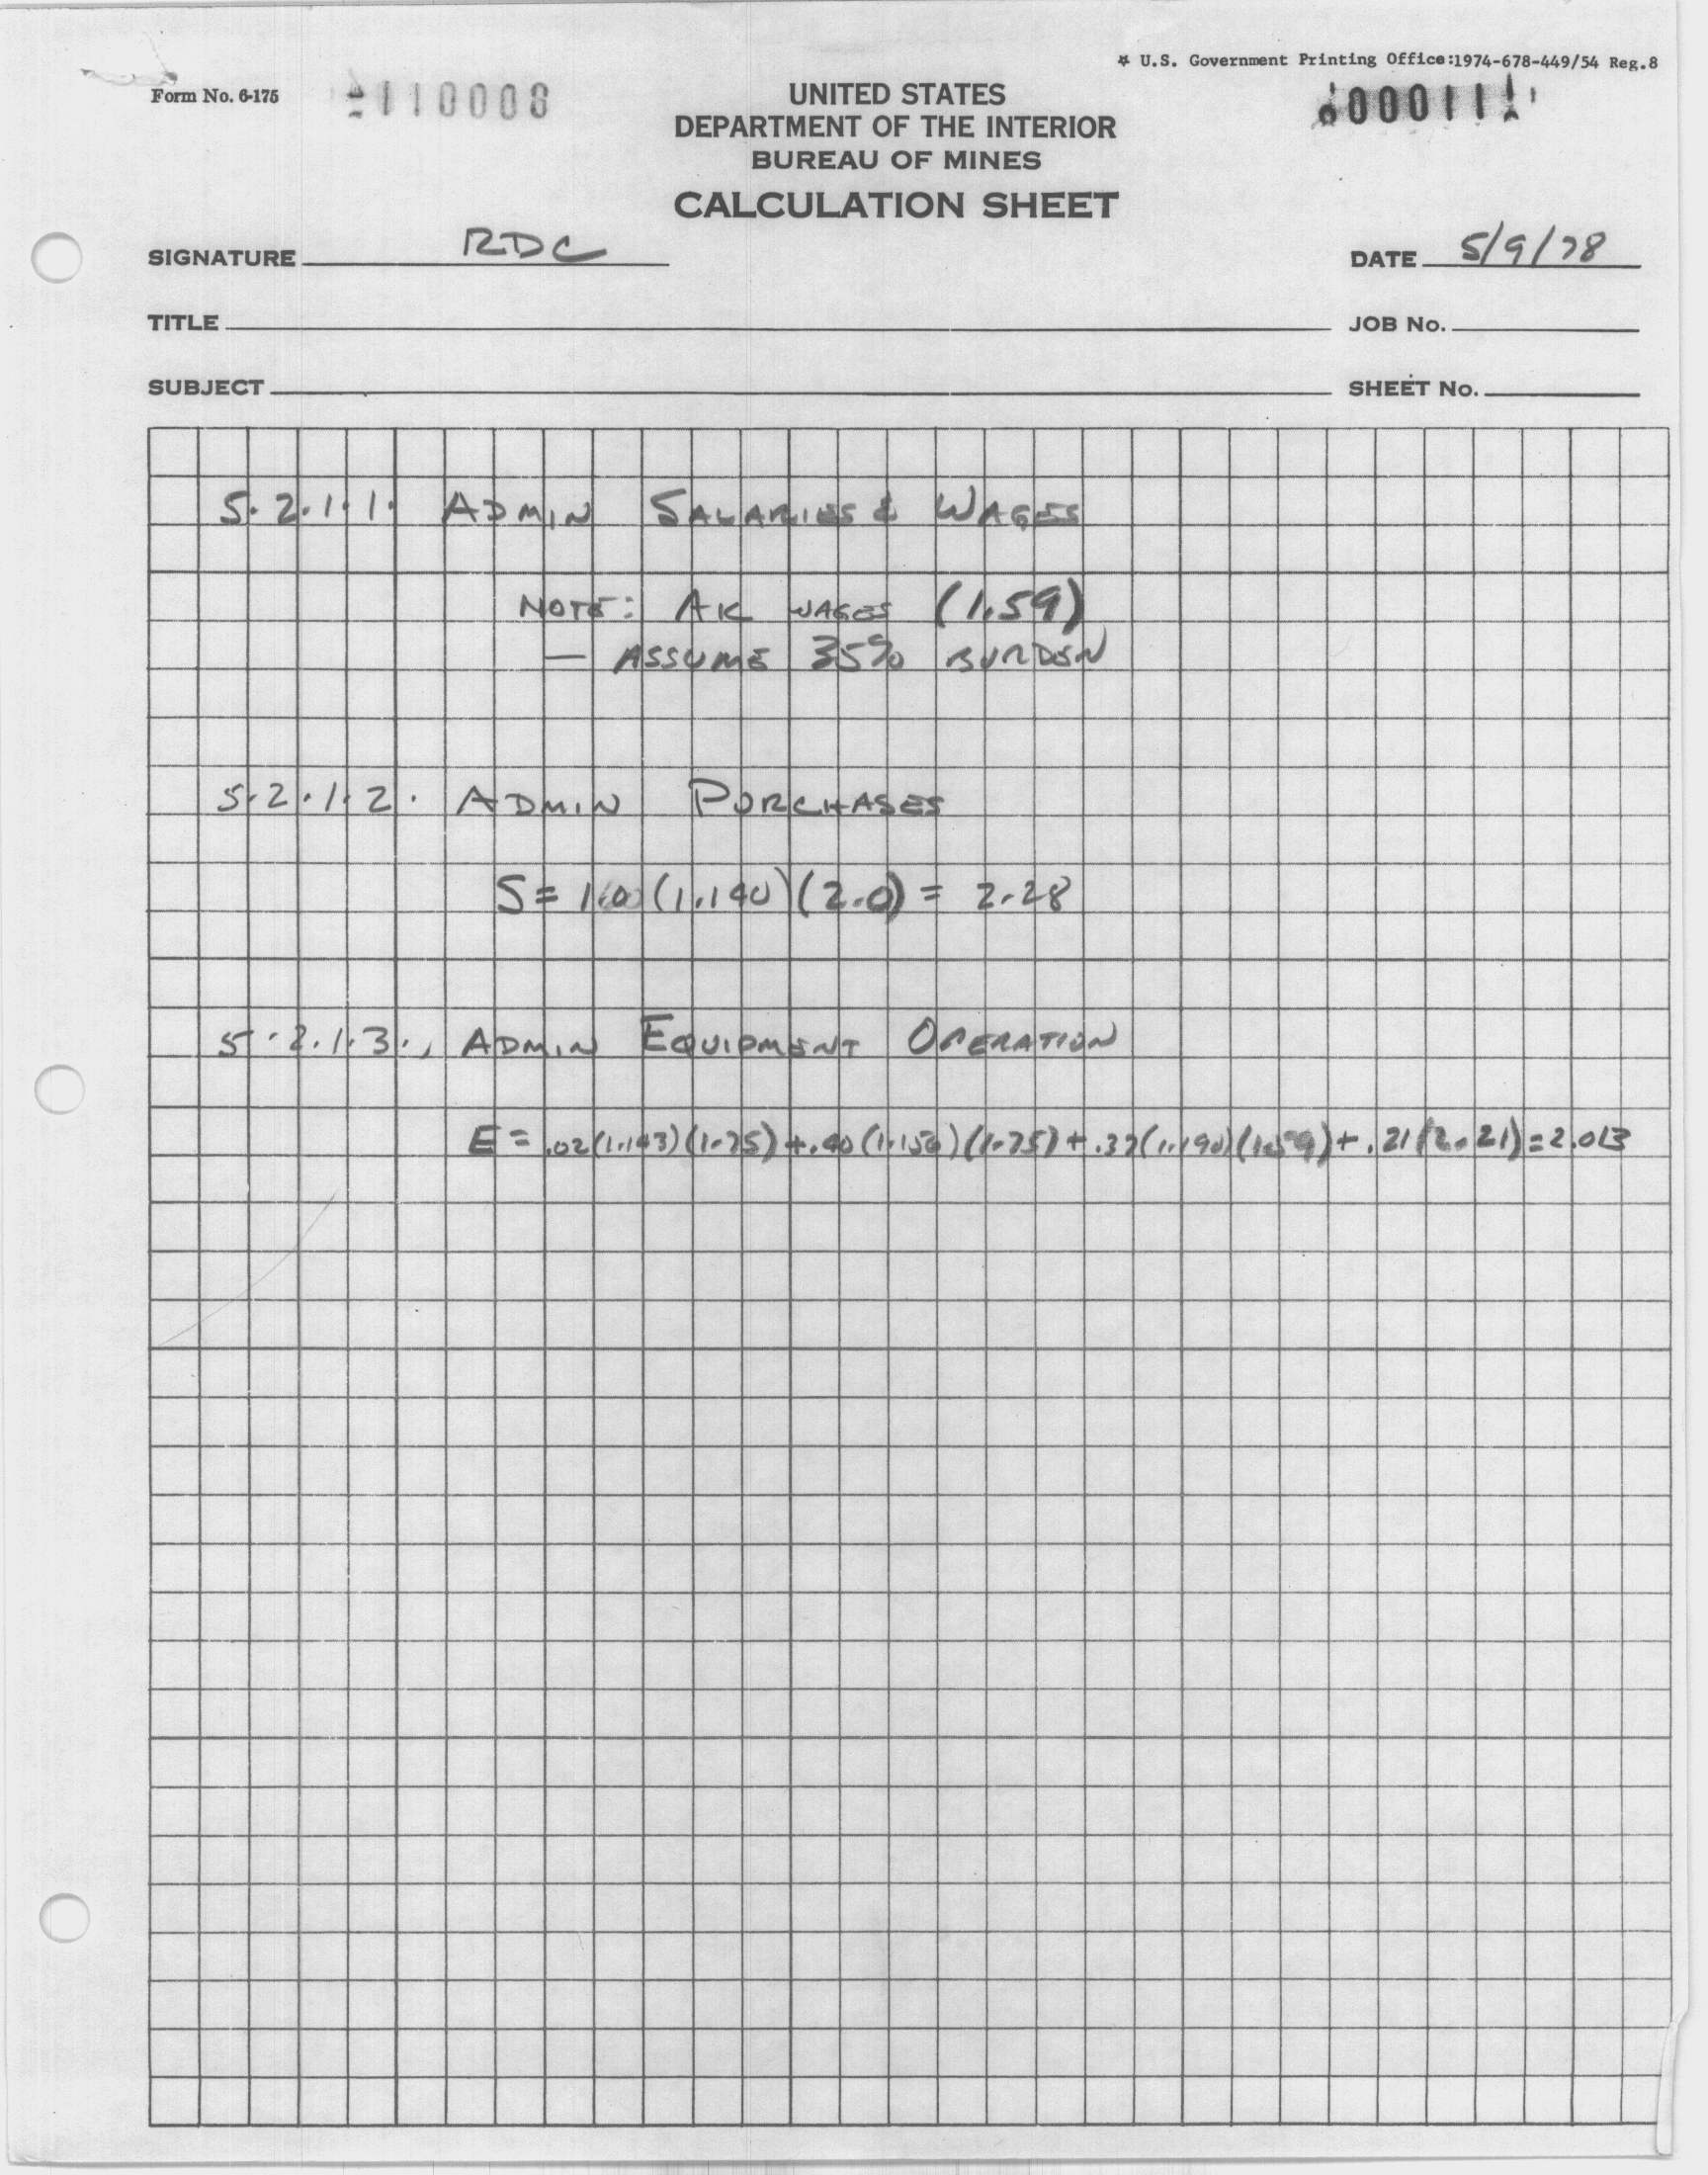 ☆ U.S. Government Printing Office:1974-678-449/54 Reg.8
Form No. 6-175
110008
UNITED STATES
DEPARTMENT OF THE INTERIOR
BUREAU OF MINES
CALCULATION SHEET
SIGNATURE RDC
DATE 5/9/78
TITLE
JOB No.
SUBJECT
SHEET No.
5.2.1.1. ADMIN SALARIES & WAGES
NOTE: AK WAGES (1.59)
— ASSUME 35% BURDEN
5.2.1.2. ADMIN PURCHASES
S = 1.0 (1.140)(2.0) = 2.28
5.2.1.3., ADMIN EQUIPMENT OPERATION
E = .02(1.143)(1.75) + .40(1.156)(1.75) + .37(1.190)(1.59) + .21(2.21) = 2.013